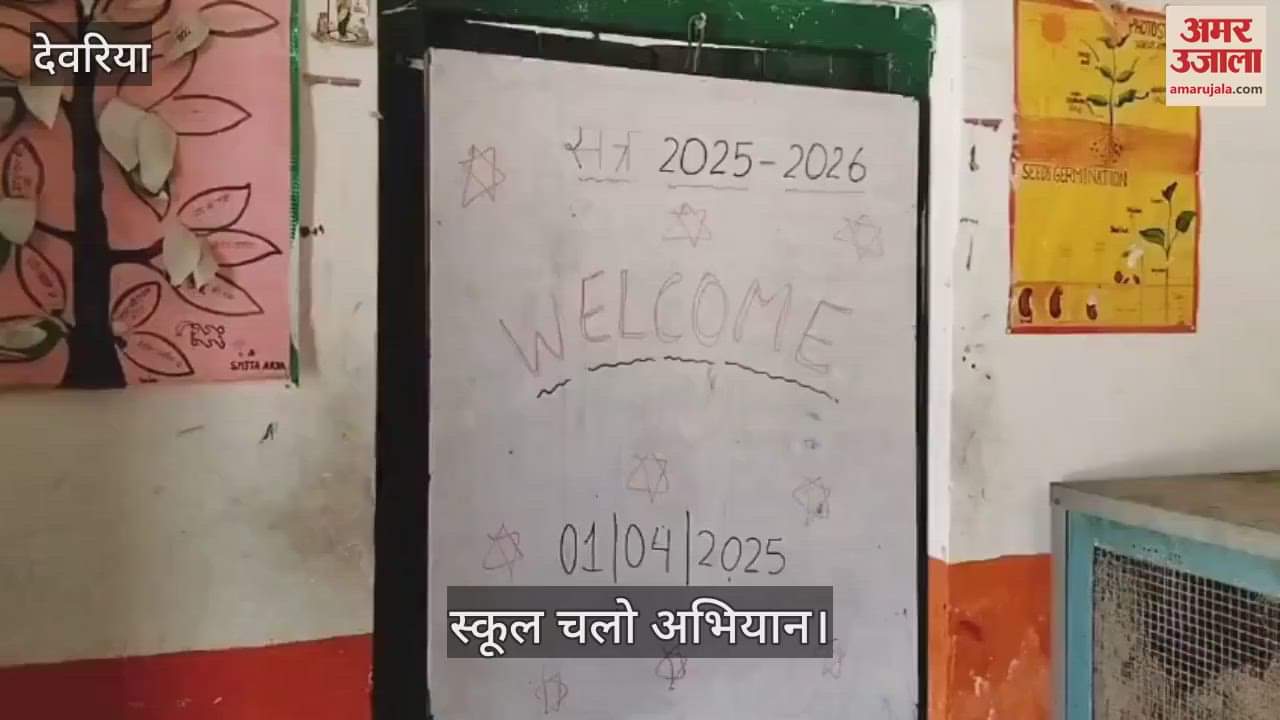 देवरिया
अमर
उजाला
amarujala.com
सत्र 2025-2026
WELCOME
01/04/2025
स्कूल चलो अभियान।
SEEDS GERMINATION
SMITA ARYA